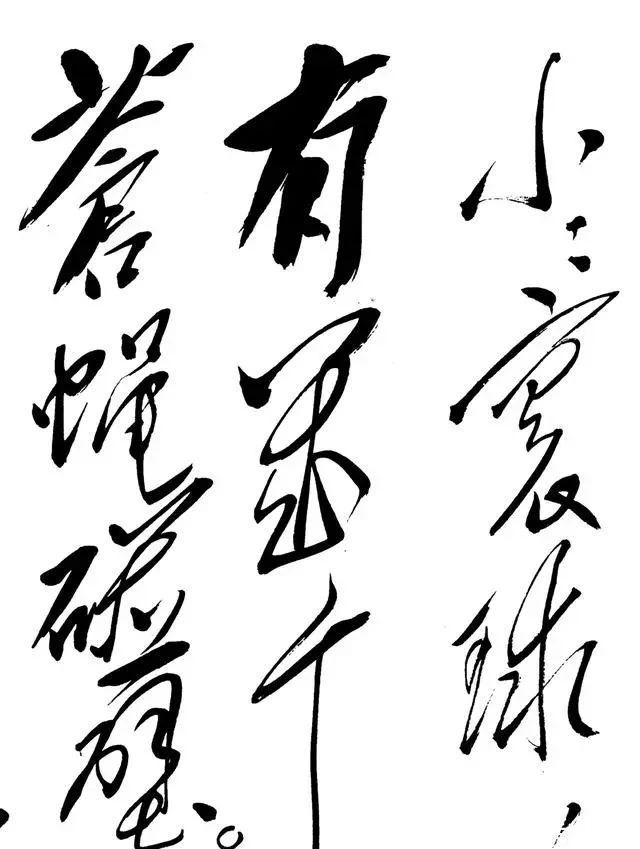 小小寰球，
有幾个
蒼蝇碰壁。